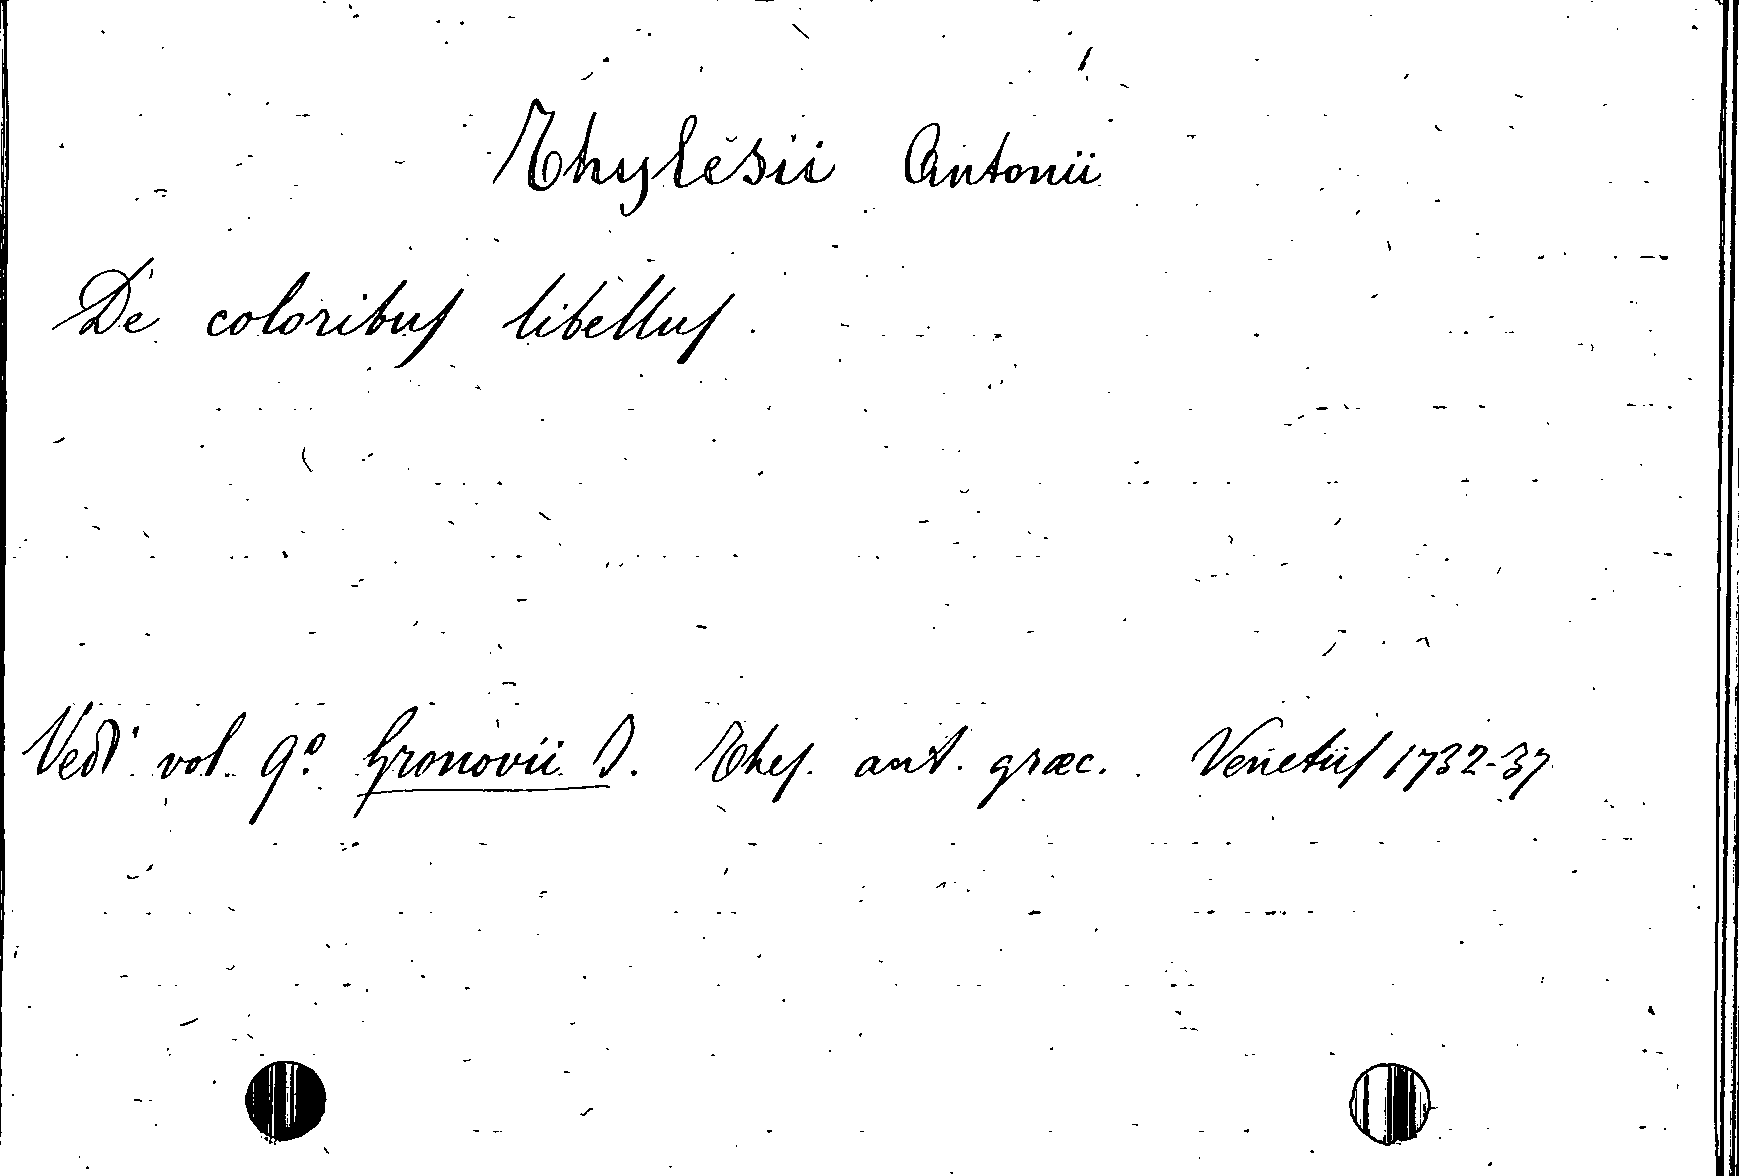 Thylesii Antonii
De coloribus libellus.
Vedi vol. 9º Gronovii J. Thes. ant. græc. Venetiis 1732-37